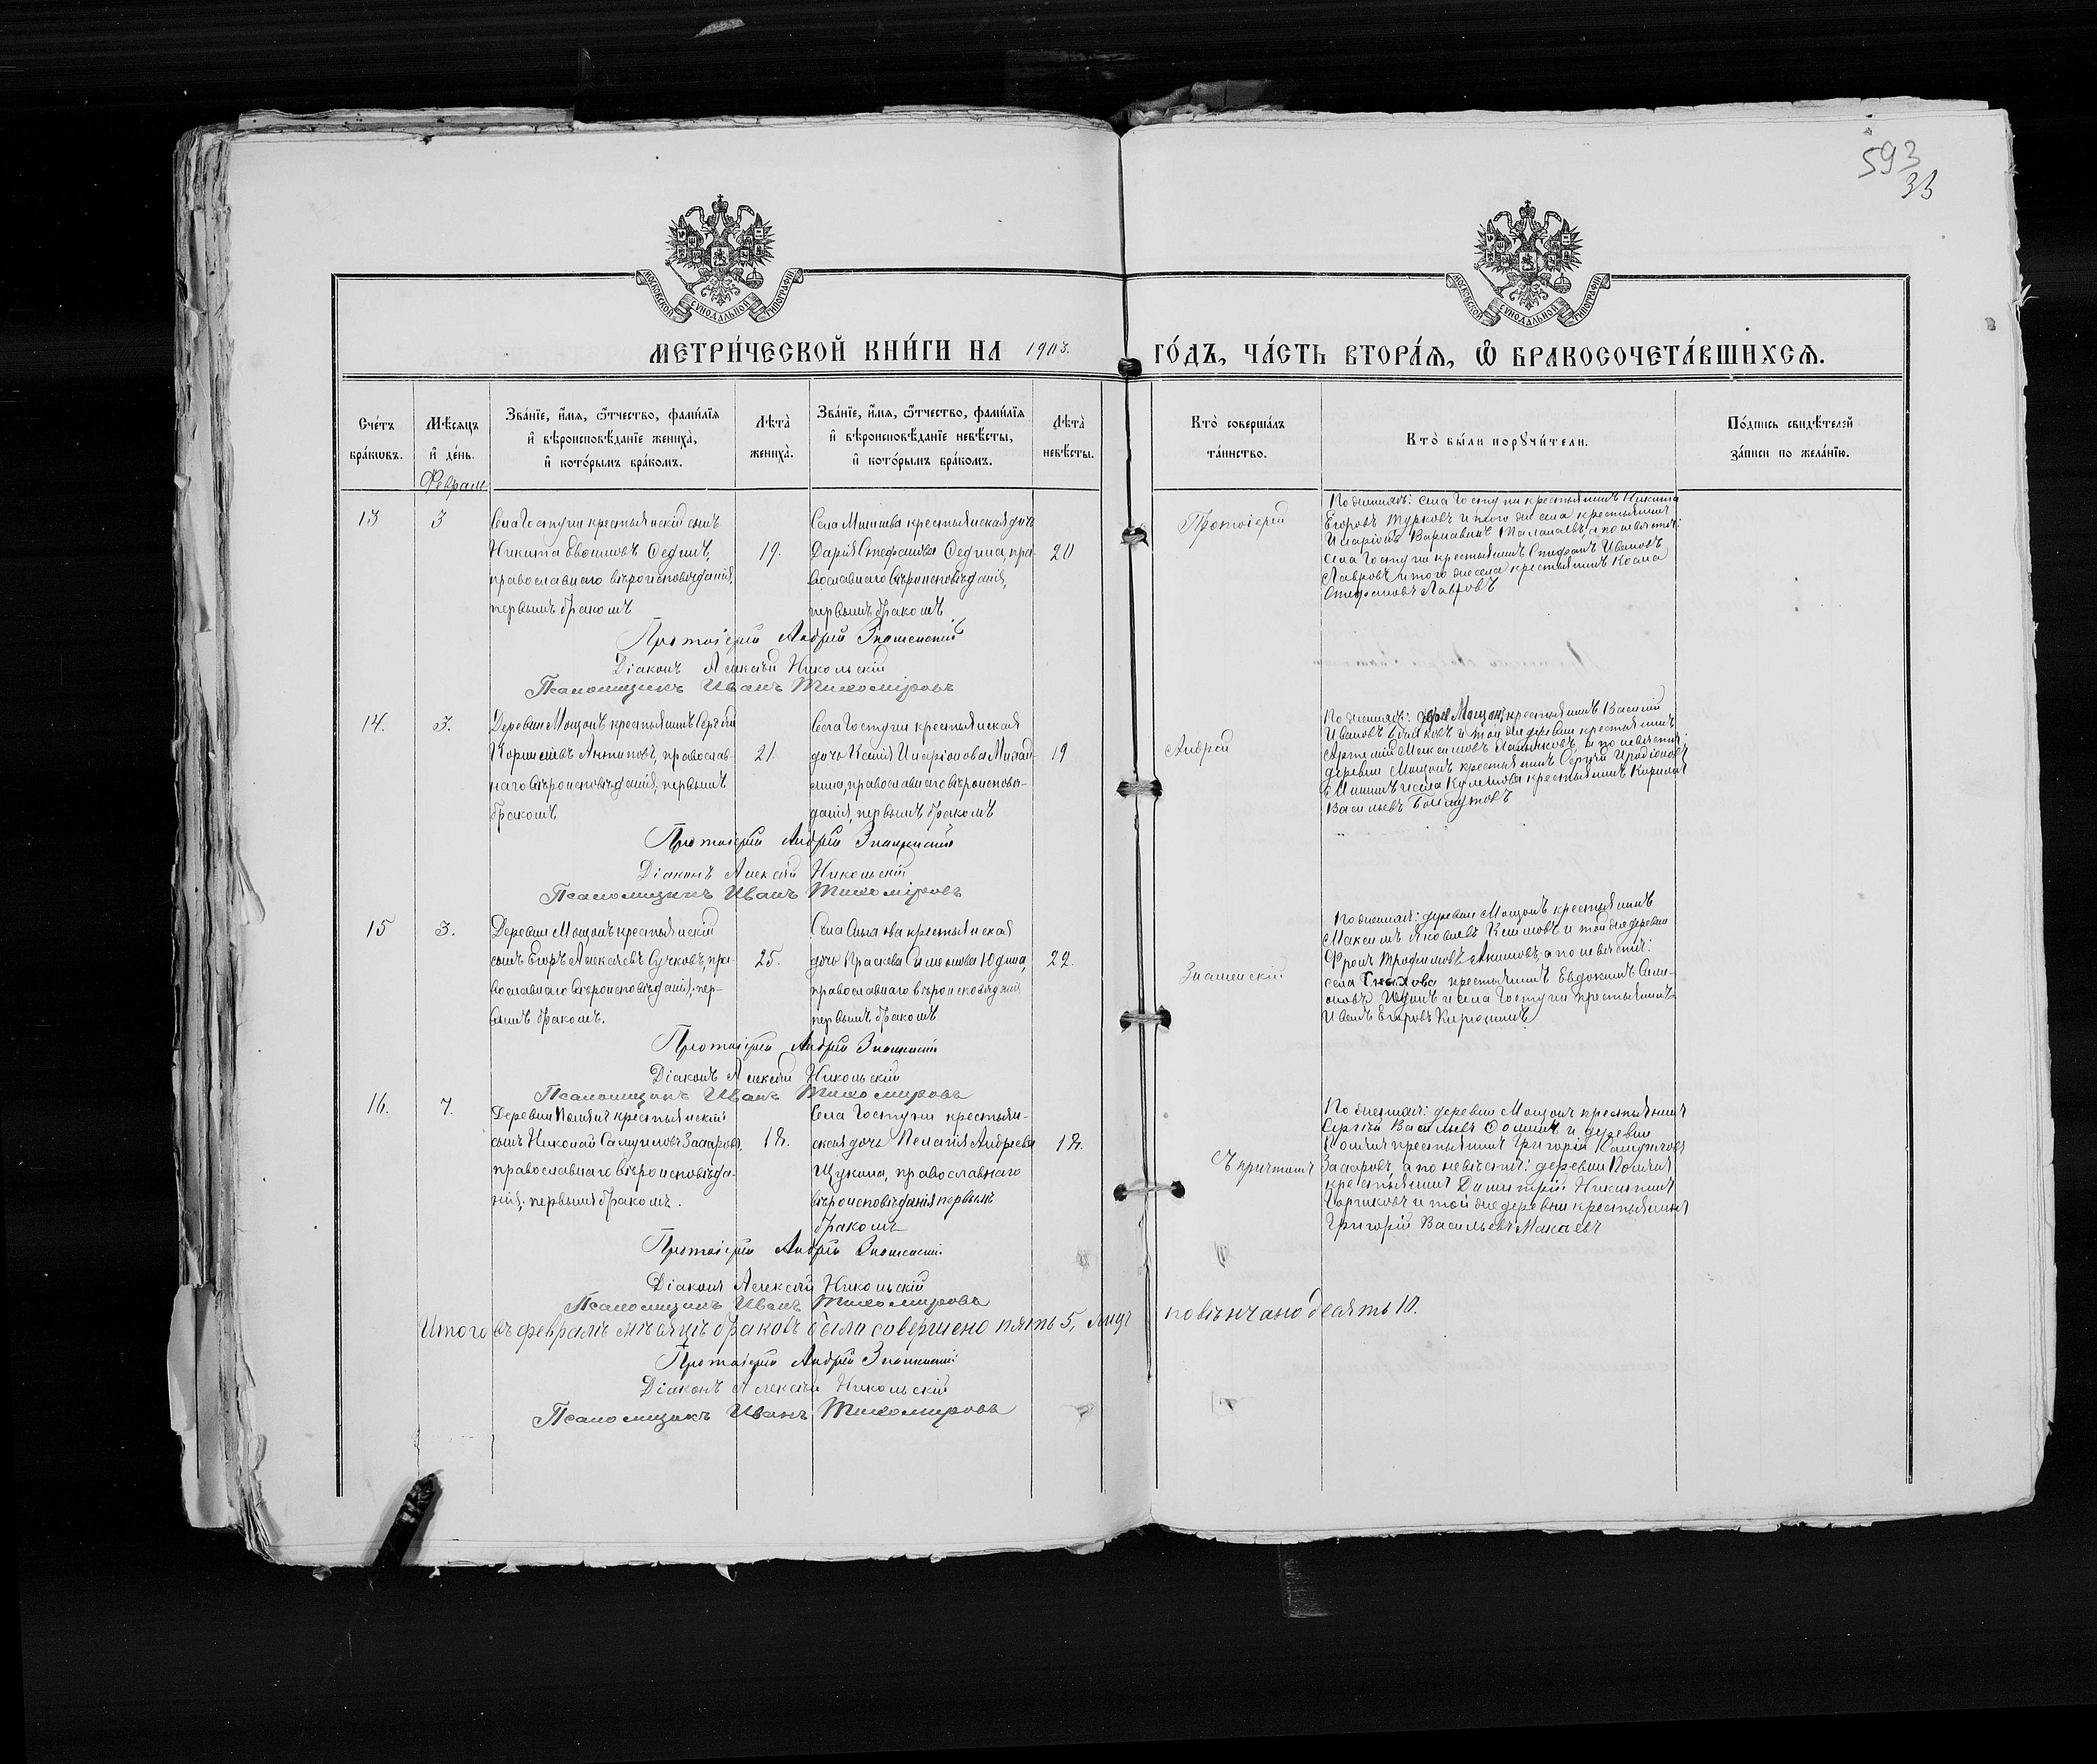 593
33
МОСКОВСКОЙ СѴНОДАЛЬНОЙ ТИПОГРАФІИ
МОСКОВСКОЙ СѴНОДАЛЬНОЙ ТИПОГРАФІИ
МЕТРИ́ЧЕСКОЙ КНИ́ГИ НА 1903. ГО́ДЪ, ЧА́СТЬ ВТОРА́Ѧ, Ѽ БРАКОСОЧЕТА́ВШИХСѦ.
Сче́тъ
бра́кѡвъ.
Мѣ́сѧцъ
и҆ де́нь.
Февраль
Зва́нїе, и҆́мѧ, ѻ҆́тчество, фамі́лїѧ
и҆ вѣроисповѣ́данїе жениха̀,
и҆ кото́рымъ бра́комъ.
Лѣта̀
жениха̀.
Зва́нїе, и҆́мѧ, ѻ҆́тчество, фамі́лїѧ
и҆ вѣроисповѣ́данїе невѣ́сты,
и҆ кото́рымъ бра́комъ.
Лѣта̀
невѣ́сты.
Кто̀ соверша́лъ
та́инство.
Кто̀ бы́ли порꙋчи́тели.
По́дпись свидѣ́телей
за́писи по жела́нїю.
13
3
Села Гостуни крестьянскій сынъ
Никита Евѳимовъ Сединъ,
православнаго вѣроисповѣданія,
первымъ бракомъ
19.
Села крестьянская дочь
Дарія Стефанова Седина, пра-
вославнаго вѣроисповѣданія,
первымъ бракомъ
20
Протоіерей
По женихѣ: села Гостуни крестьянинъ Никита
Егоровъ Турковъ и того же села крестьянинъ
Иларіонъ а по невѣстѣ:
села Гостуни крестьянинъ Стефанъ Ивановъ
Лавровъ и того же села крестьянинъ Косма
Стефановъ Лавровъ
Протоіерей Андрей Знаменскій
Діаконъ Алексѣй Никольскій
Псаломщикъ Иванъ Тихоміровъ
14.
3.
Деревни Мощонъ крестьянинъ Сергѣй
Корниліевъ Антиповъ, православ-
наго вѣроисповѣданія, первымъ
бракомъ
21.
Села Гостуни крестьянская
дочь Ксенія Иларіонова
православнаго вѣроисповѣ-
данія, первымъ бракомъ
19
Андрей
По женихѣ: Мощонъ крестьянинъ Василій
Ивановъ и той же деревни крестьянинъ
Артемій а по невѣстѣ:
деревни Мощонъ крестьянинъ Сергѣй
и села крестьянинъ Кириллъ
Васильевъ
Протоіерей Андрей Знаменскій
Діаконъ Алексѣй Никольскій
Псаломщикъ Иванъ Тихоміровъ
15
3.
Деревни Мощонъ крестьянскій
сынъ Егоръ Алексѣевъ Сучковъ, пра-
вославнаго вѣроисповѣданія, пер-
вымъ бракомъ.
25.
Села крестьянская
дочь Праскева Симеонова Юдина,
православнаго вѣроисповѣданія
первымъ бракомъ
22.
Знаменскій
По женихѣ: деревни Мощонъ крестьянинъ
Максимъ Яковлевъ и той же деревни
Фролъ Трофимовъ Акимовъ, а по невѣстѣ:
села крестьянинъ Евдокимъ Симе-
оновъ Юдинъ и села Гостуни крестьянинъ
Иванъ Егоровъ Кирюшинъ
Протоіерей Андрей Знаменскій
Діаконъ Алексѣй Никольскій
Псаломщикъ Иванъ Тихомировъ
16.
7.
Деревни крестьянскій
сынъ Николай Самуиловъ Захаровъ,
православнаго вѣроисповѣда-
нія, первымъ бракомъ.
18.
Села Гостуни крестьян-
ская дочь Пелагія Андреева
Щукина, православнаго
вѣроисповѣданія первымъ
бракомъ
18.
Съ причтомъ
По женихѣ: деревни Мощонъ крестьянинъ
Сергѣй Васильевъ Ѳоминъ и деревни
крестьянинъ Григорій Самуиловъ
Захаровъ, а по невѣстѣ: деревни
крестьянинъ Димитрій Никитинъ
и той же деревни крестьянинъ
Григорій Васильевъ Макаевъ
Протоіерей Андрей Знаменскій
Діаконъ Алексѣй Никольскій
Псаломщикъ Иванъ Тихомировъ
Итого въ февралѣ мѣсяцѣ браковъ было совершено пять 5, лицъ повѣнчано десять 10.
Протоіерей Андрей Знаменскій
Діаконъ Алексѣй Никольскій
Псаломщикъ Иванъ Тихомировъ